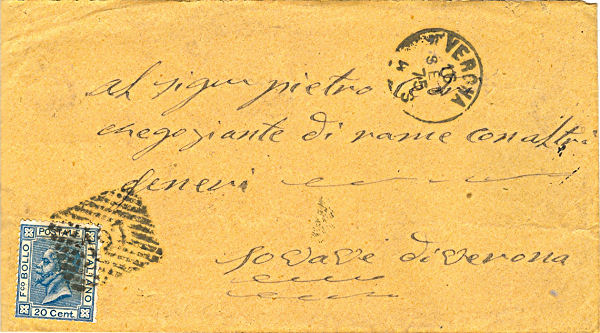 VERONA
75
al sigur pietro
negoziante di rame con altri
generi
sovave diverona
POSTALE
ITALIANO
Fco BOLLO
20 Cent.